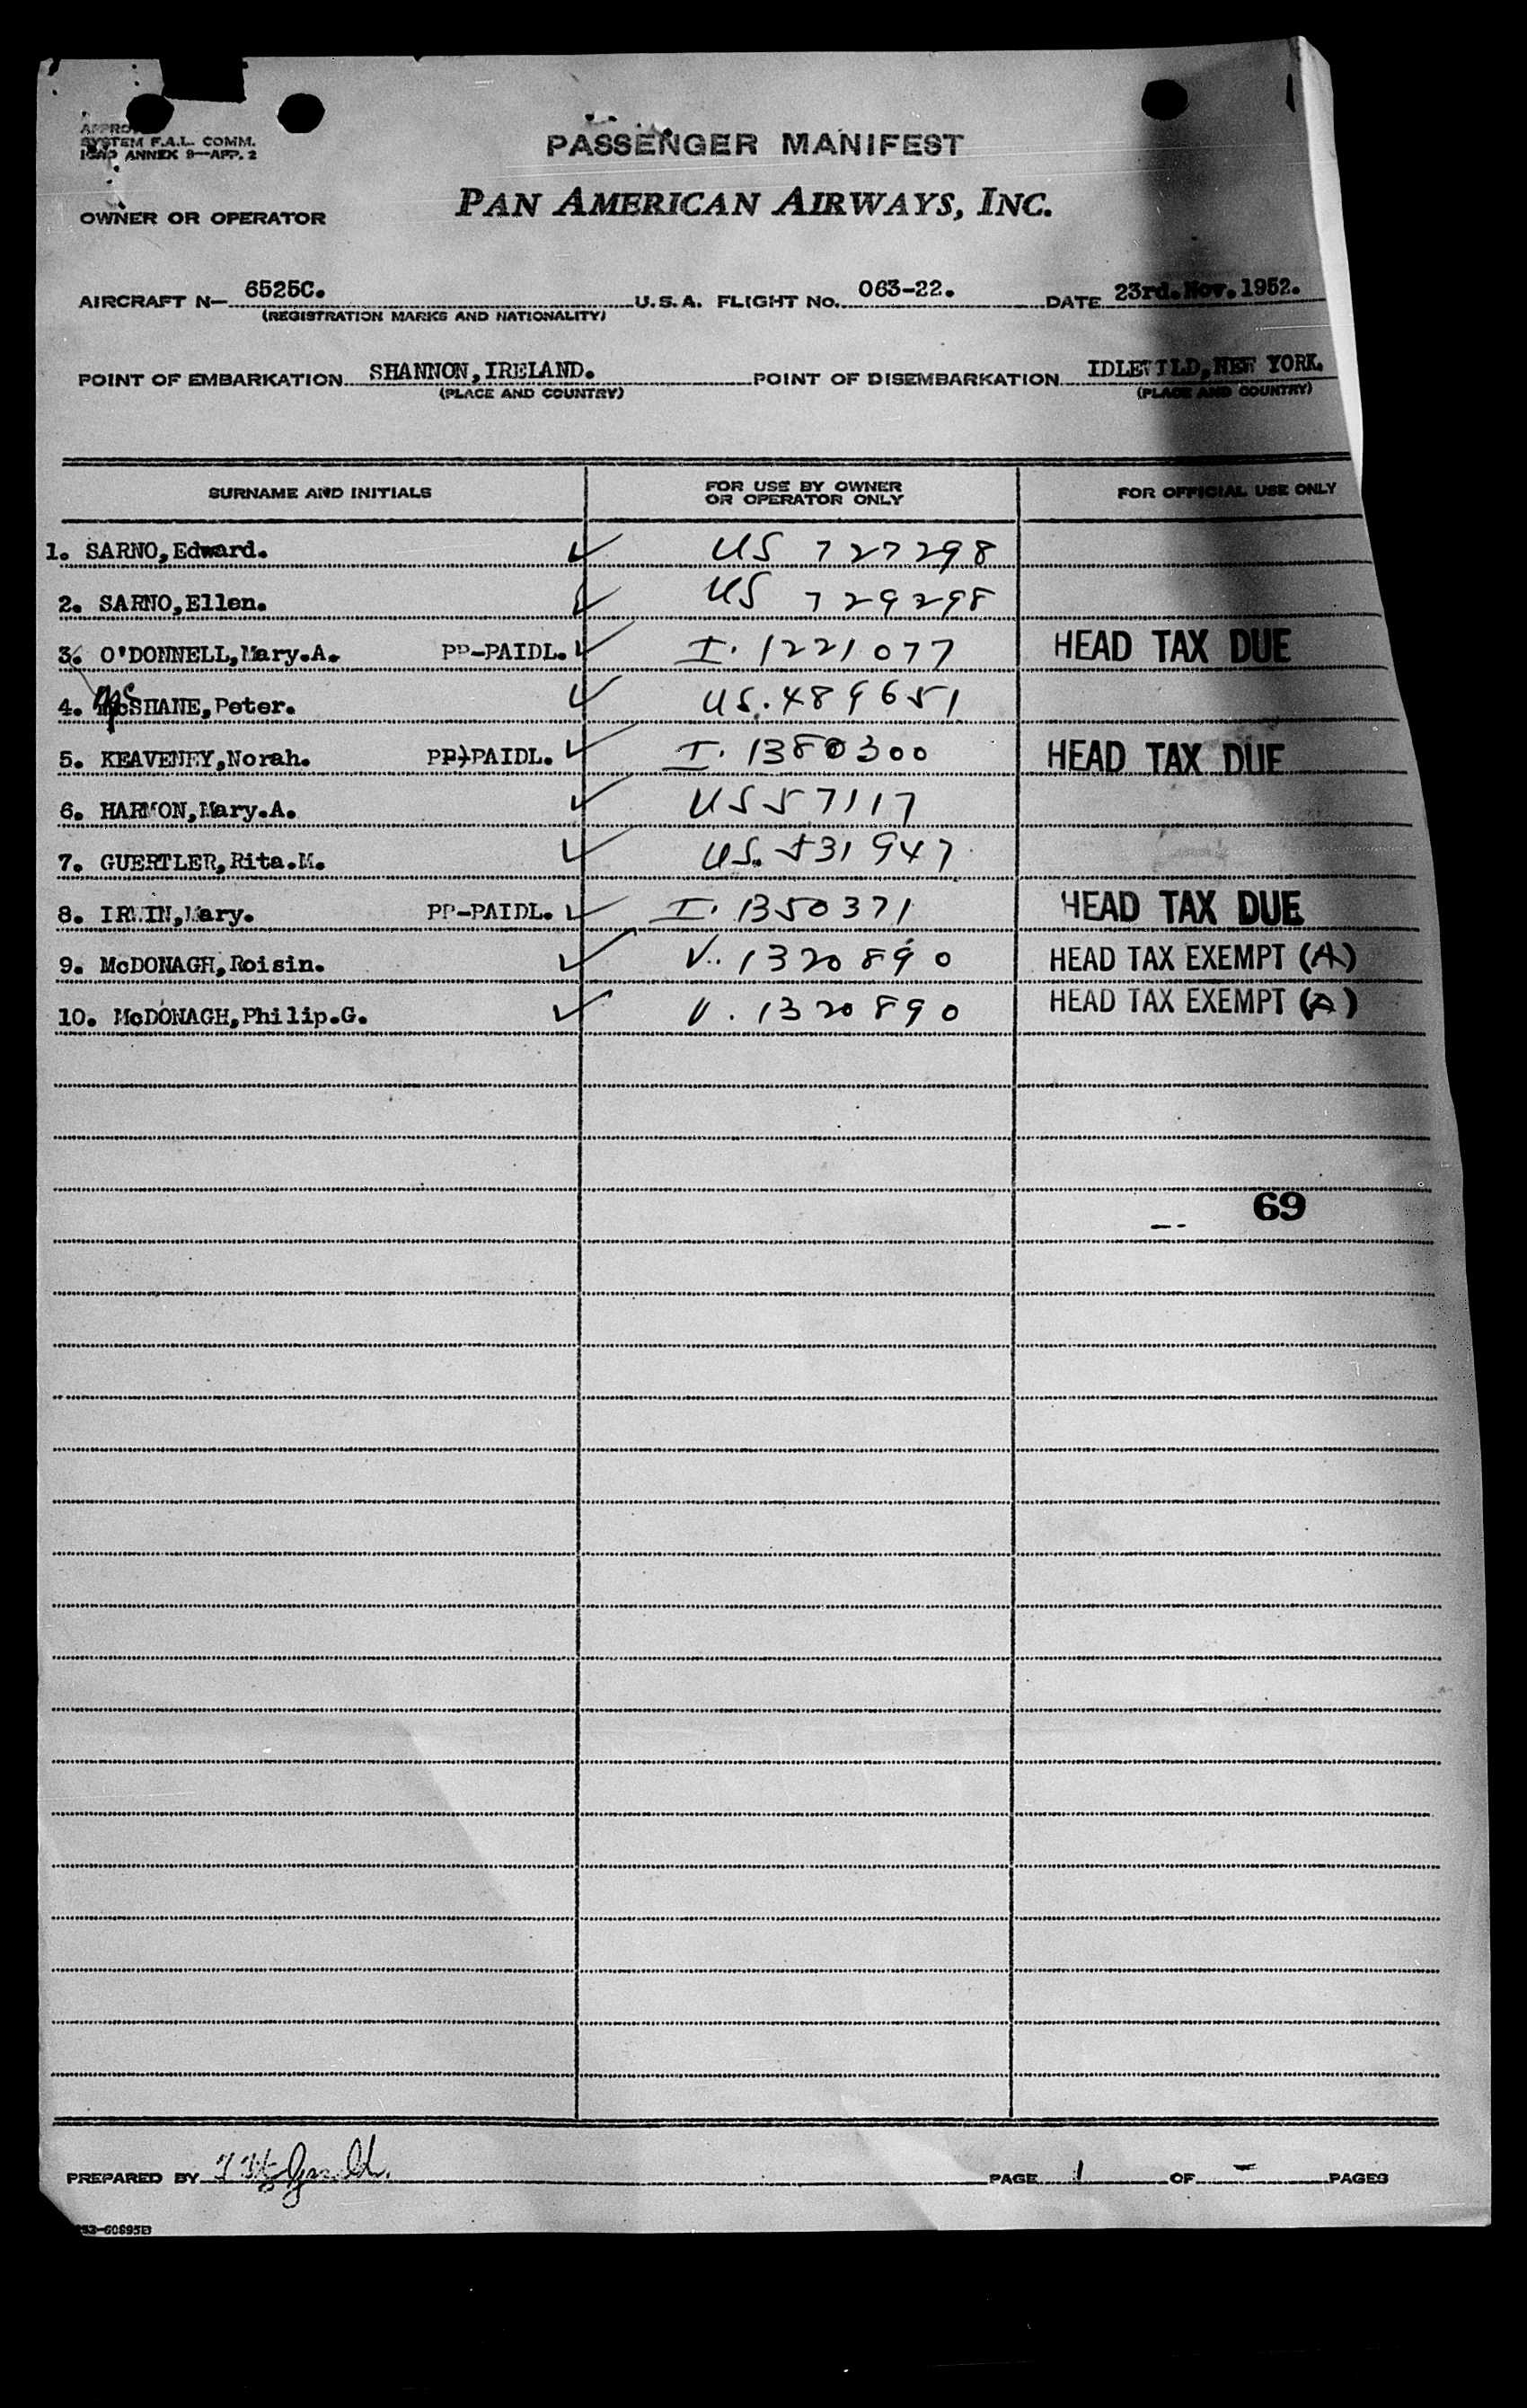 SYSTEM F.A.L. COMM.
ICAO ANNEX 9—APP. 2
PASSENGER MANIFEST
OWNER OR OPERATOR PAN AMERICAN AIRWAYS, INC.
AIRCRAFT N— 6525C. U.S.A. FLIGHT NO. 063-22. DATE 23rd.Nov.1952.
(REGISTRATION MARKS AND NATIONALITY)
POINT OF EMBARKATION SHANNON,IRELAND. POINT OF DISEMBARKATION IDLEWILD,NEW YORK.
(PLACE AND COUNTRY) (PLACE AND COUNTRY)
SURNAME AND INITIALS FOR USE BY OWNER OR OPERATOR ONLY FOR OFFICIAL USE ONLY
1. SARNO,Edward. ✓ US 727298
2. SARNO,Ellen. ✓ US 729298
3. O'DONNELL,Mary.A. PP-PAIDL. ✓ I. 1221077 HEAD TAX DUE
4. McSHANE,Peter. ✓ US. 489651
5. KEAVENEY,Norah. PP)PAIDL. ✓ I. 1380300 HEAD TAX DUE
6. HARMON,Mary.A. ✓ US 57117
7. GUERTLER,Rita.M. ✓ US. 531947
8. IRWIN,Mary. PP-PAIDL. ✓ I. 1350371 HEAD TAX DUE
9. McDONAGH,Roisin. ✓ V. 1320890 HEAD TAX EXEMPT (A)
10. McDONAGH,Philip.G. ✓ V. 1320890 HEAD TAX EXEMPT (A)
69
PREPARED BY PAGE 1 OF - PAGES